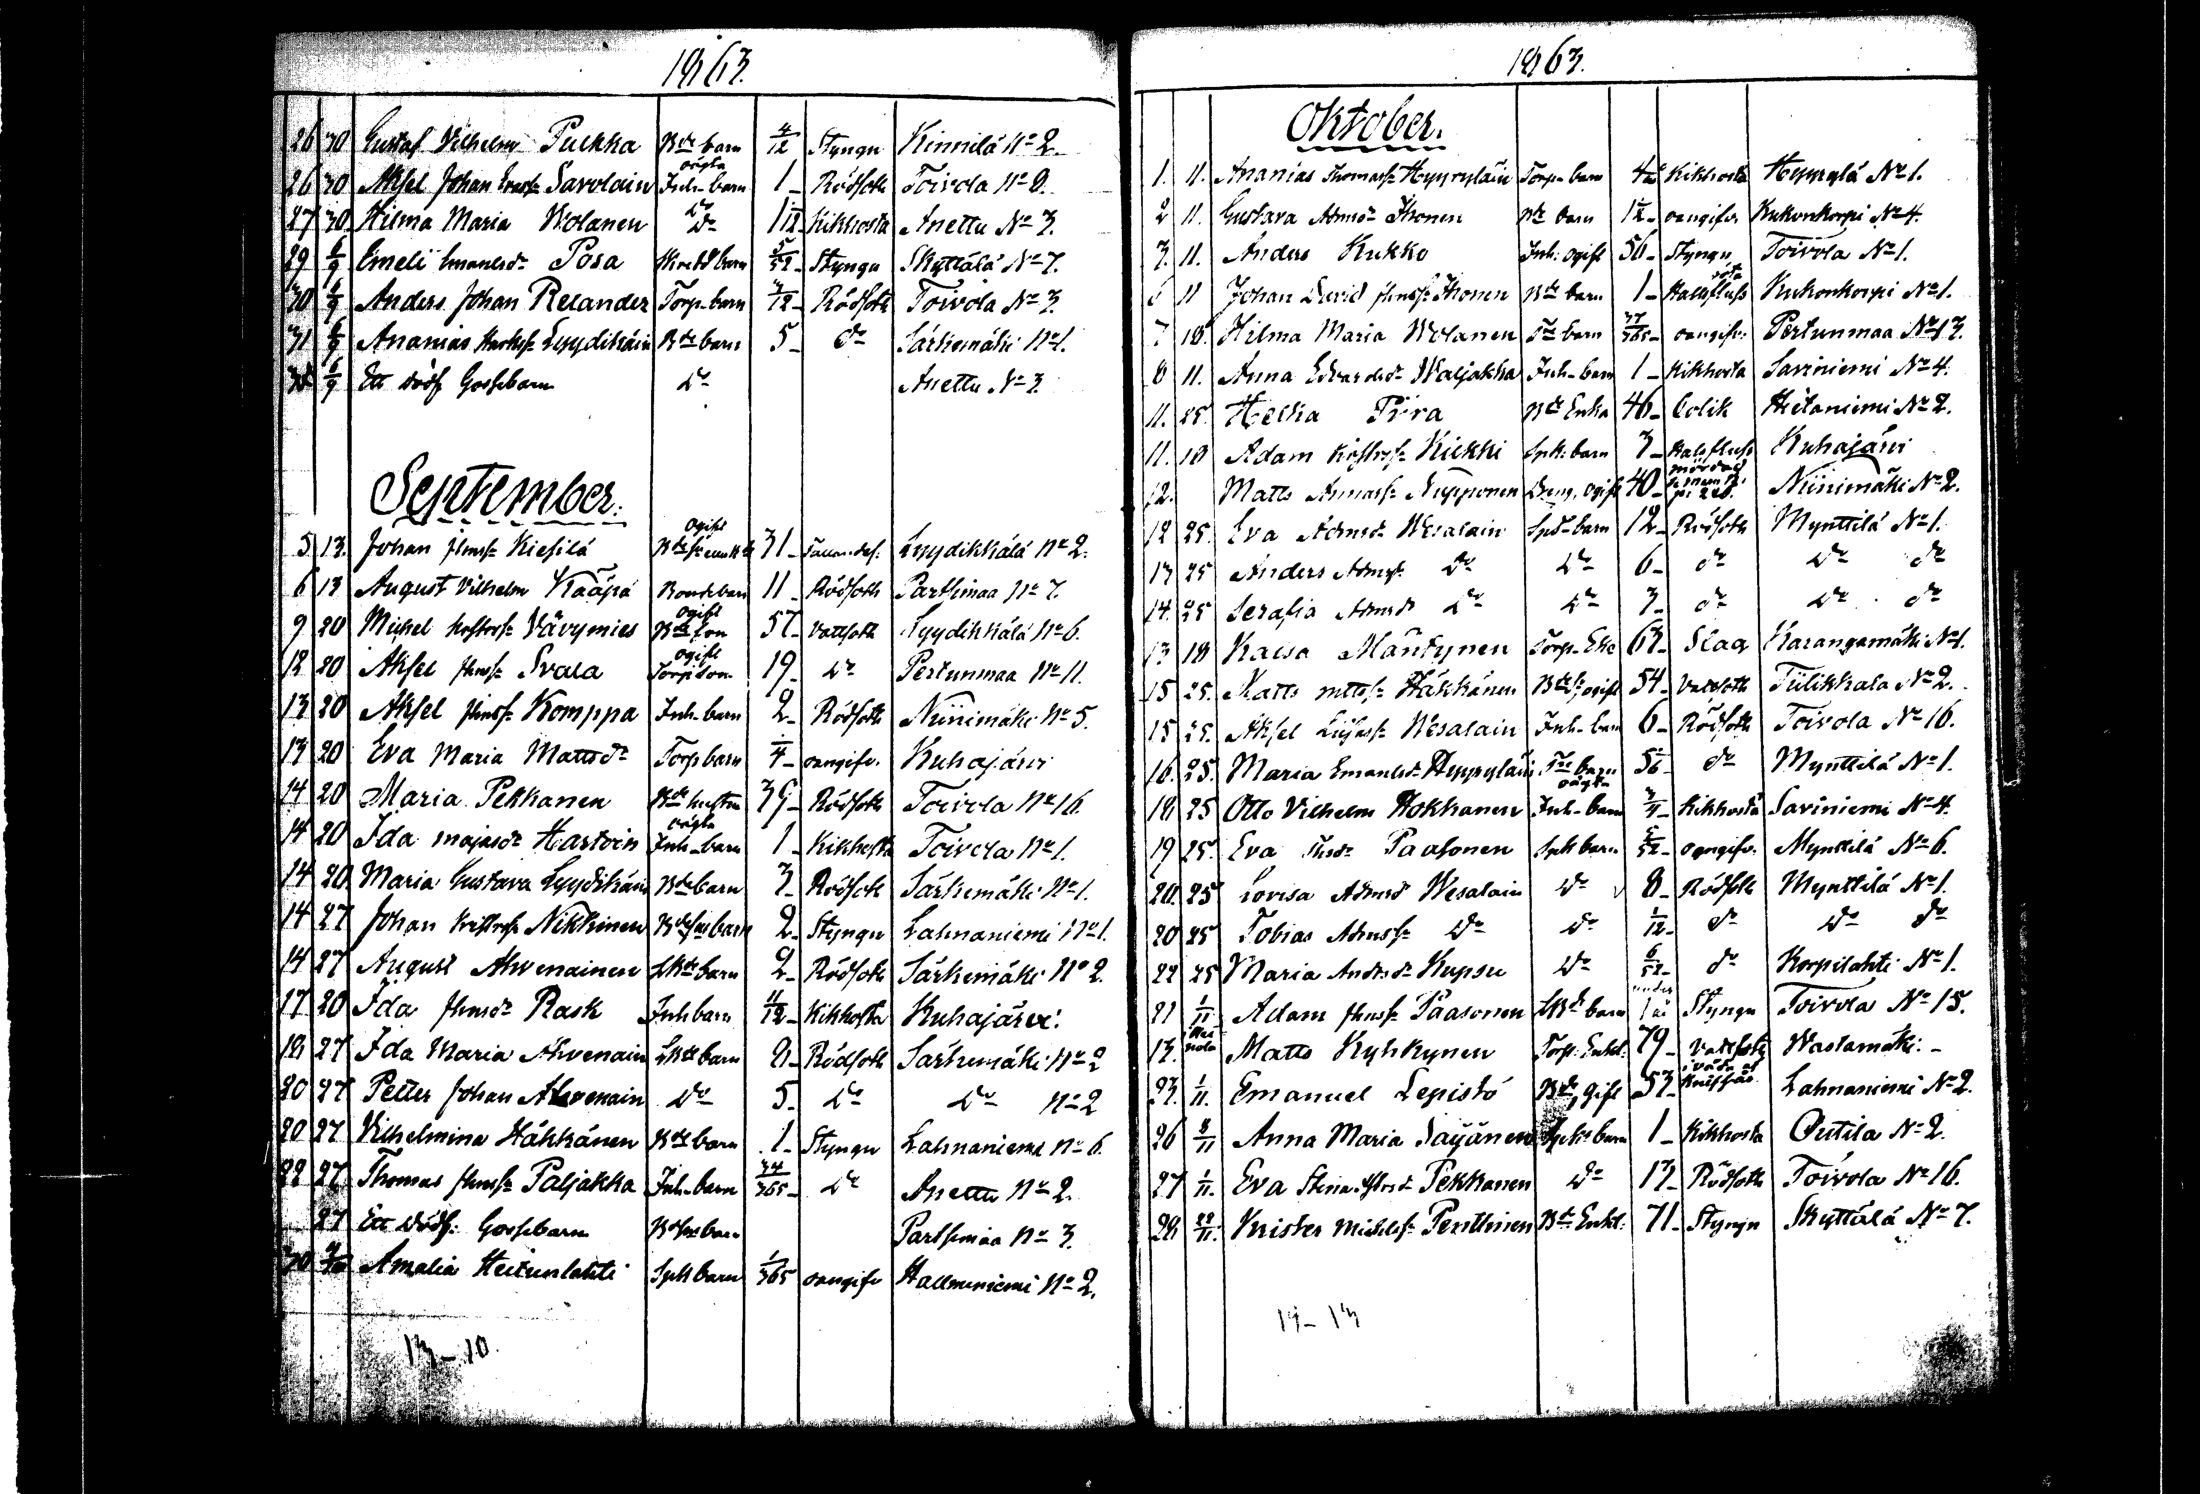 1863.
26 30 Gustaf Vilhelm Pulkka Bde barn 4/12 Styngn Kinnilä No 2.
26 30 Aksel Johan Ernss. Savolain oägta Inh. barn 1 Rödsoth Toivola No 8.
27 30 Hilma Maria Wolanen Do 1 1/12 Kikhosta Anettu No 3.
29 6/9 Emeli Emanlsdr Posa barn 5/52 Styngn Skyttälä No 7.
30 6/9 Anders Johan Relander Torp. barn 3/12 Rödsoth Toivola No 3.
31 6/9 Ananias Lyydikäin Bde barn 5 do Särkemäki No 1.
6/9 Ett dödf. Gossebarn Do Anettu No 3.
September.
5 13. Johan Jhnss. Kiesilä ogift 31 Lyydikkälä No 2.
6 13 August Vilhelm Kääpä Bondebarn 11 Rödsoth Partsimaa No 7.
9 20 Mickel Vävymies ogift Bde son 57 Vattsoth Lyydikkälä No 6.
12 20 Aksel Jhnss. Svala ogift Torp. son 19 Do Pertunmaa No 11.
13 20 Aksel Jhnss. Komppa Inh. barn 2 Rödsoth Niinimäki No 5.
13 20 Eva Maria Mattsdr Torp barn 1/4 oangifv. Kuhajärvi
14 20 Maria Pekkanen Bde hustru 39 Rödsoth Toivola No 16.
14 20 Ida majasdr Hartoin oägta Inh. barn 1 Kikhosta Toivola No 1.
14 20 Maria Gustava Lyydikäin Bde barn 3 Rödsoth Särkemäki No 1.
14 27 Johan Nikkinen barn 2 Styngn Lahnaniemi No 1.
14 27 August Ahvenainen LBde barn 2 Rödsoth Särkemäki No 2.
17 20 Ida Jhnsdr Rask Inh barn 11/12 Kikhosta Kuhajärvi.
18 27 Ida Maria Ahvenain LBde barn 8 Rödsoth Särkemäki No 2
20 27 Petter Johan Ahvenain Do 5 Do Do No 2
20 27 Vilhelmina Häkkänen Bde barn 1 Styngn Lahnaniemi No 6.
22 27 Thomas Jhnss. Paljakka Inh. barn 34/365 Do Anettu No 2.
27 Ett dödf. Gossebarn barn Partsimaa No 3.
30 Amalia Heitunlahti Spk barn 1/365 oangifv Hallmeniemi No 2.
13 – 10
1863.
Oktober.
1. 11. Ananias Thomass. Hyyrylain Torp. barn Kikhosta Hyyrylä No 1.
2 11. Gustava Admsdr Ihonen Bde barn 1/2 oangifv. Kukonkorpi No 4.
3. 11. Anders Kukko Inh: ogift 56 Styngn Toivola No 1.
11 Johan David Jhnss. Ihonen Bde barn 1 Halsfluss Kukonkorpi No 1.
7 18. Hilma Maria Wolanen barn 37/365 oangifv. Pertunmaa No 13.
8 11. Anna Edvardsdr Waljakka Inh. barn 1 Kikhosta Saviniemi No 4.
11. 25. Helka Piira Bde Enka 46 Colik Hietaniemi No 2.
11. 18 Adam Kiekki Spk: barn 3 Halsfluss Kuhajärvi
12. Matts Annass. Nupponen Dreng, ogift 40 mördad Niinimäki No 2.
12 25. Eva Admsdr Wesalain Spk barn 12 Rödsoth Mynttilä No 1.
13 25 Anders Admss. Do Do 6 do Do do
14. 25 Serafia Admsdr Do Do 3 do Do do
13 18 Kaisa Mäntynen Torp. Eka 63 Slag Karangamäki No 1.
15 25. Matts mttss. Häkkänen ogift 54 Vattsoth Tiilikkala No 2.
15 25. Aksel Wesalain Inh. barn 6 Rödsoth Toivola No 16.
16. 25. Maria Emanlsdr Hyyryläin barn do Mynttilä No 1.
18 25 Otto Vilhelm Hokkanen oägta Inh. barn 3/4 Kikhosta Saviniemi No 4.
19 25. Eva Thsdr Paasonen Spk barn 2/52 oangifv. Mynttilä No 6.
20. 25 Lovisa Admsdr Wesalain Do 8 Rödsoth Mynttilä No 1.
20 25 Tobias Admss. Do Do 1/12 do Do do
22 25 Maria Andrsdr Kupsu Do 6/52 do Korpilahti No 1.
21 1/11 Adam Jhnss. Paasonen LBde barn under 1 år Styngn Toivola No 15.
13. Matts Kyhkynen Torp: Enkl: 79 Vattsoth Wastamäki.
23. 1/11. Emanuel Lepistö Bde, gift 53 Lahnaniemi No 2.
26 8/11 Anna Maria Säijänen Spk: barn 1 Kikhosta Outila No 2.
27 1/11. Eva Stina Pekkanen Do 13 Rödsoth Toivola No 16.
28 22/11. Krister Michelss. Penttinen Bde Enkl. 71 Styngn Skyttälä No 7.